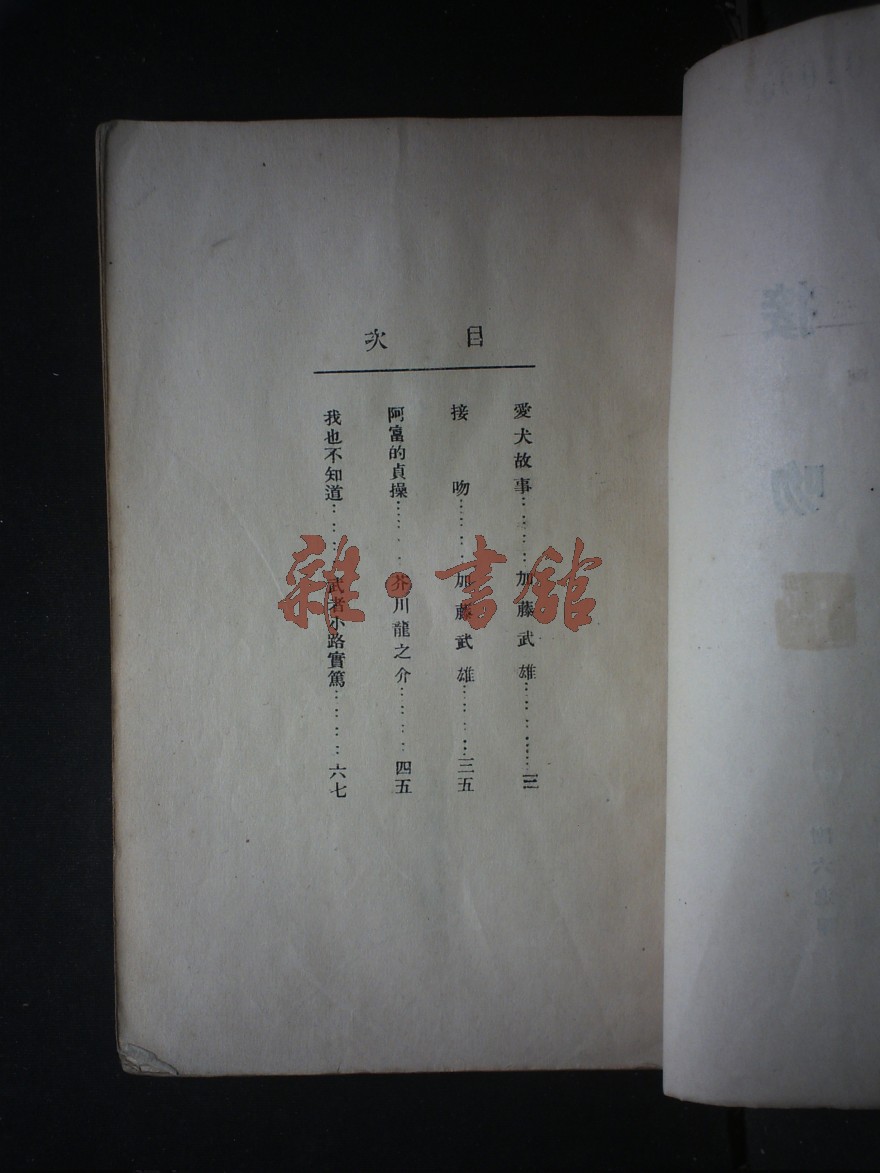 目次
愛犬故事………加藤武雄………三
接吻………加藤武雄………三五
阿富的貞操………芥川龍之介………四五
我也不知道………武者小路實篤………六七
雜·書館
接吻